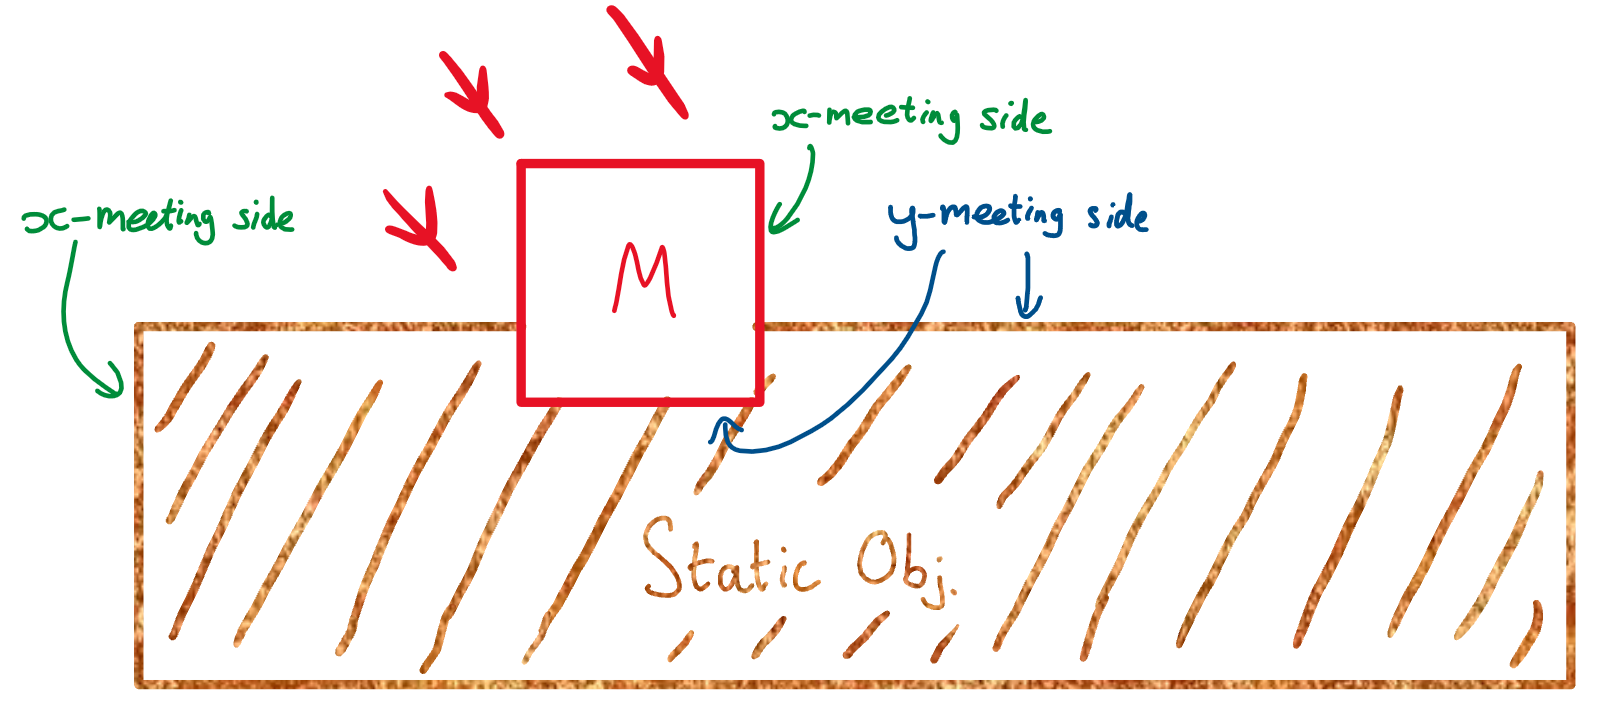 x-meeting side
x-meeting side
y-meeting side
M
Static Obj.